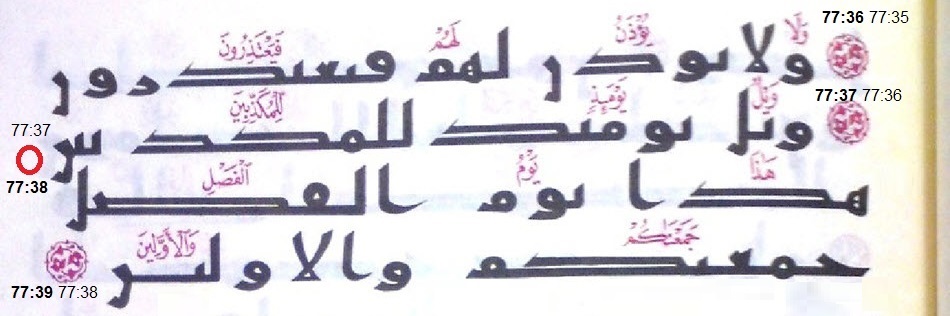 77:36 77:35
وَلَا يُؤْذَنُ لَهُمْ فَيَعْتَذِرُونَ
ولا يودن لهم فيعتدرون
77:37 77:36
وَيْلٌ يَوْمَئِذٍ لِلْمُكَذِّبِينَ
ويل يومئد للمكدبين
77:37
77:38
هَٰذَا يَوْمُ الْفَصْلِ
هدا يوم الفصل
جَمَعْنَاكُمْ وَالْأَوَّلِينَ
جمعنكم والاولين
77:39 77:38